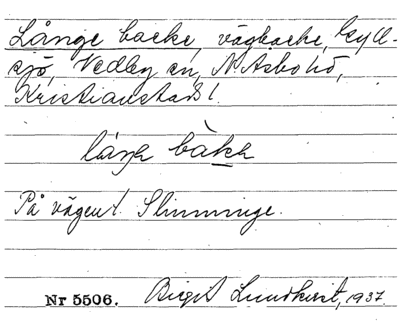 Långe backe, vägbacke, Gyll-
sjö, Vedby sn, N. Åsbo hd,
Kristianstads l.
långə bàkə
På vägen t. Slimminge.
Nr 5506. Birgit Lundkvist, 1937.